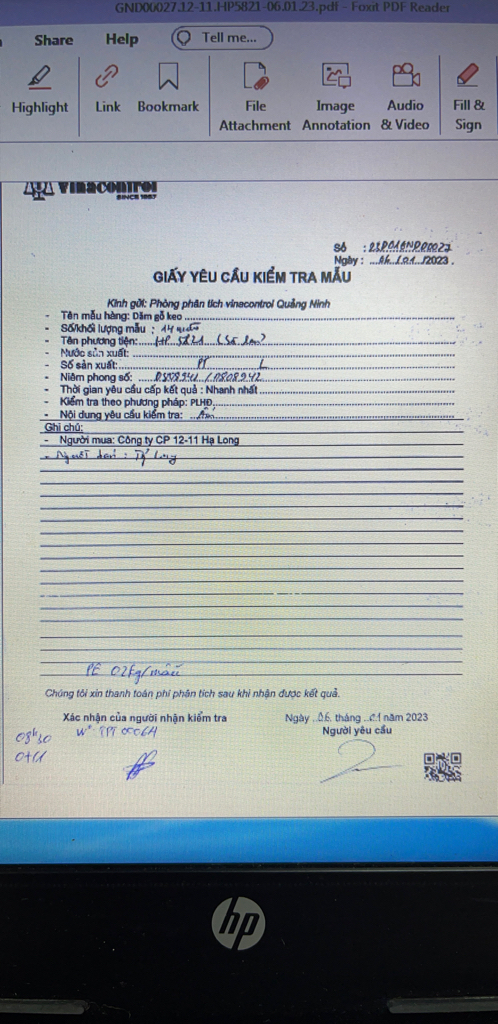 GND00027.12-11.HP5821-06.01.23.pdf - Foxit PDF Reader
Share Help Tell me...
Highlight Link Bookmark File Attachment Image Annotation Audio & Video Fill & Sign
Vinacontrol
SINCE 1957
Số : 23D01GND00027
Ngày : 06/01/2023.
GIẤY YÊU CẦU KIỂM TRA MẪU
Kính gửi: Phòng phân tích vinacontrol Quảng Ninh
- Tên mẫu hàng: Dăm gỗ keo
- Số/khối lượng mẫu : 14
- Tên phương tiện: HP 5821
- Nước sản xuất:
- Số sản xuất: PT L
- Niêm phong số: 0808941 / 0808942
- Thời gian yêu cầu cấp kết quả : Nhanh nhất
- Kiểm tra theo phương pháp: PLHĐ
- Nội dung yêu cầu kiểm tra: Ẩm
Ghi chú:
- Người mua: Công ty CP 12-11 Hạ Long
- Người bán : Long
PE 02kg/mẫu
Chúng tôi xin thanh toán phí phân tích sau khi nhận được kết quả.
Xác nhận của người nhận kiểm tra
Ngày 06 tháng 01 năm 2023
Người yêu cầu
08h30
hp